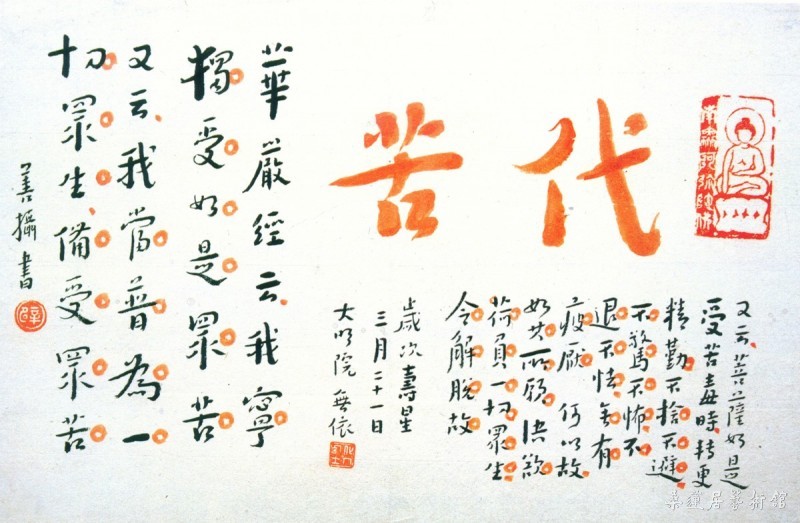 南無阿彌陀佛
代苦
又云菩薩如是
受苦毒時轉更
精勤不捨不避
不驚不怖不
退不怯無有
疲厭何以故
如其所願決欲
荷負一切眾生
令解脫故
歲次壽星
三月二十一日
大明院 無依
華嚴經云我寧
獨受如是眾苦
又云我當普為一
切眾生備受眾苦
善攝書
蓮居藝術館